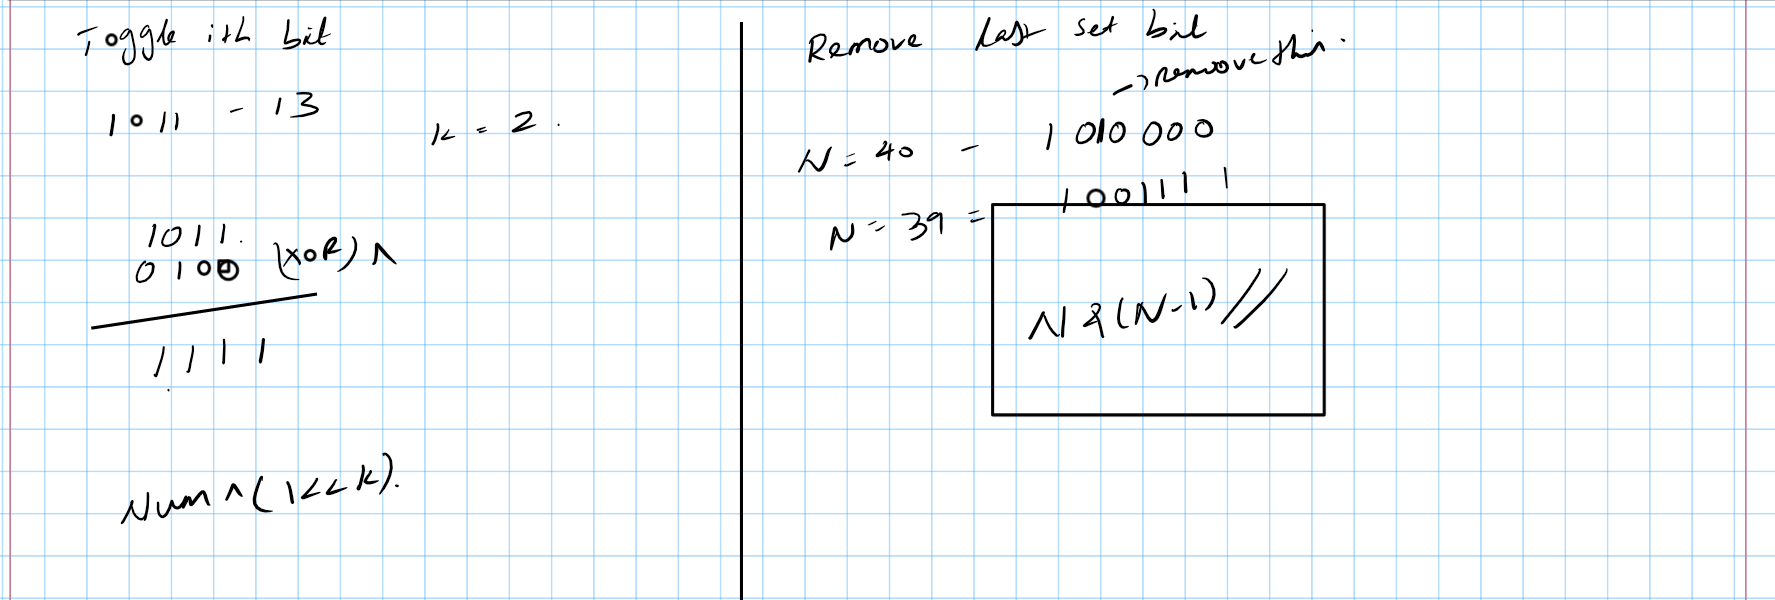 Toggle ith bit
1011 - 13
k = 2.
1011.
0100 (XOR) ^
1111
Num ^ (1<<k).
Remove last set bit
→ remove this.
N = 40 - 1010000
N = 39 = 1001111
N & (N-1) //